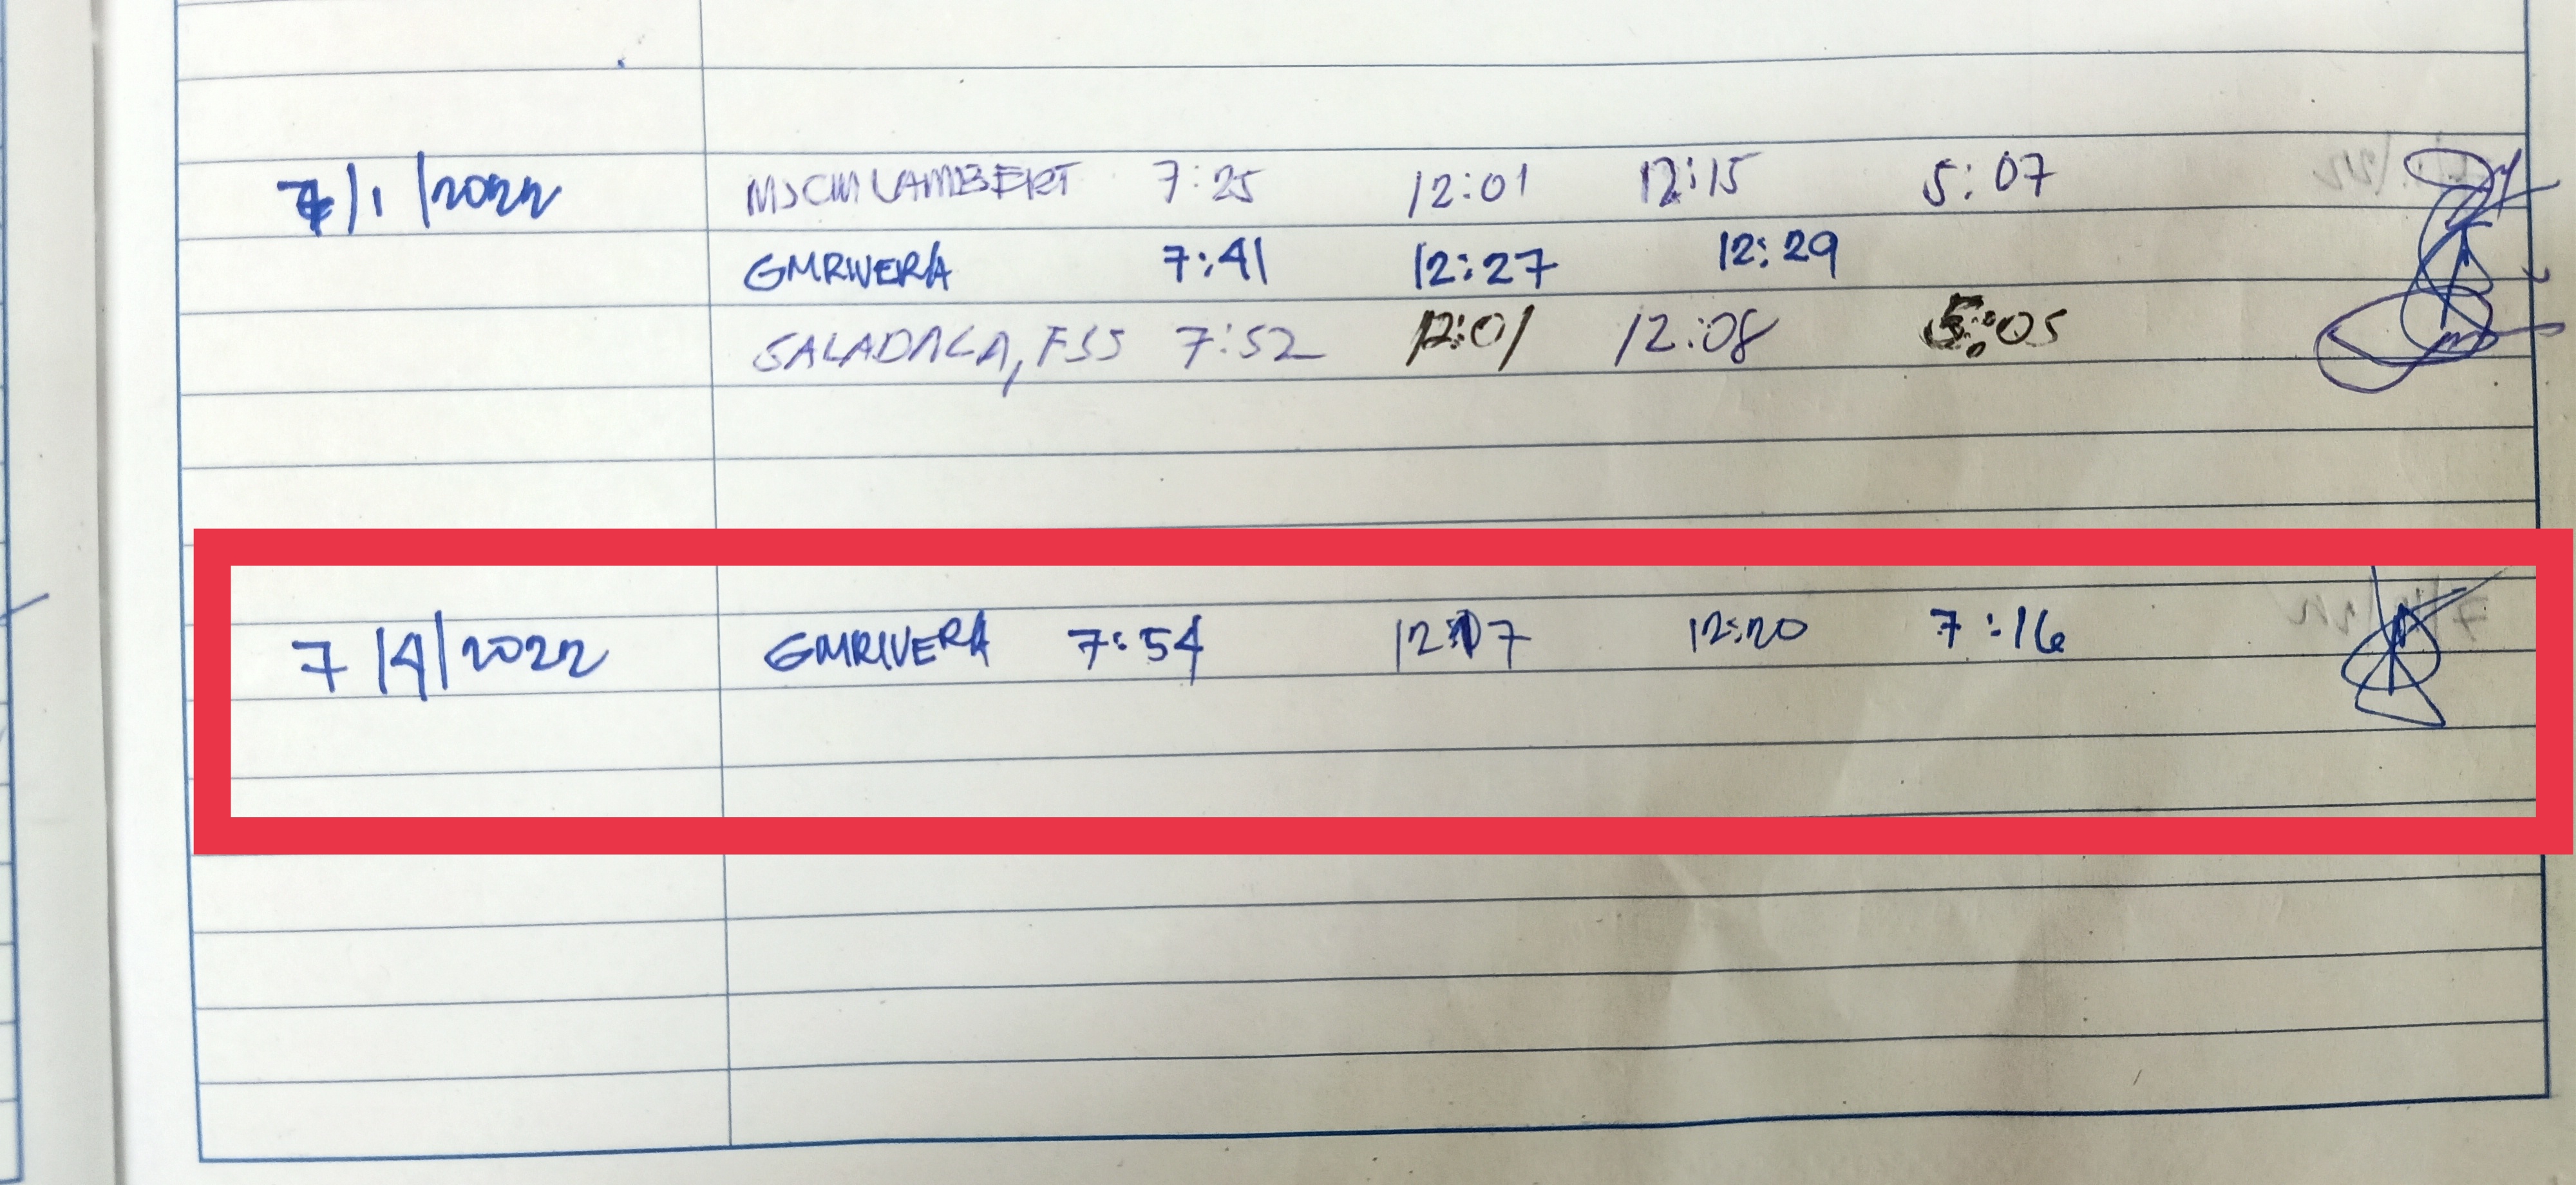 7/1/2022 MJCMLAMBERT 7:25 12:01 12:15 5:07
GMRIVERA 7:41 12:27 12:29
SALADAGA, FSS 7:52 12:01 12:08 5:05
7/4/2022 GMRIVERA 7:54 12:17 12:20 7:16